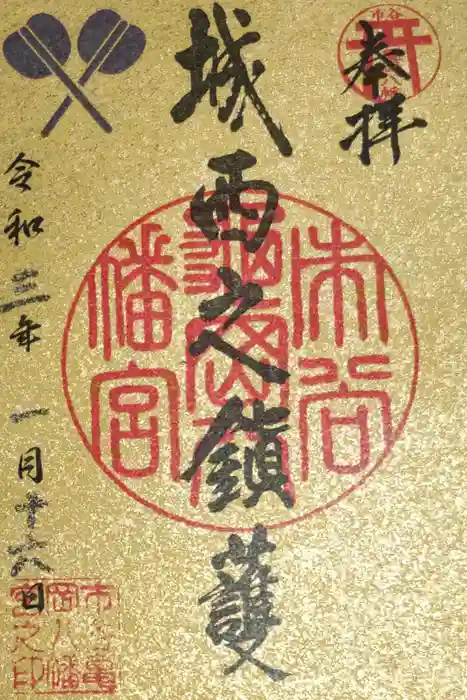 奉拝
市谷
八幡
城西之鎮護
市谷
亀岡八
幡宮
令和三年一月十六日
市谷亀
岡八幡
宮之印